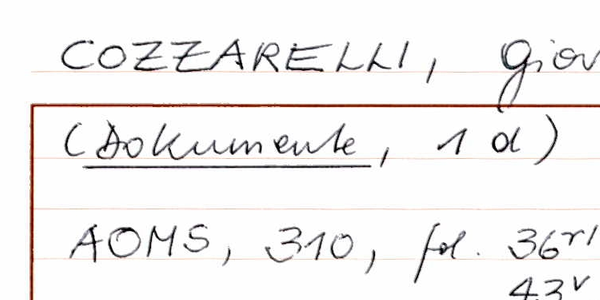 COZZARELLI, Giov
(Dokumente, 1 d)
AOMS, 310, fol. 36r/
43v